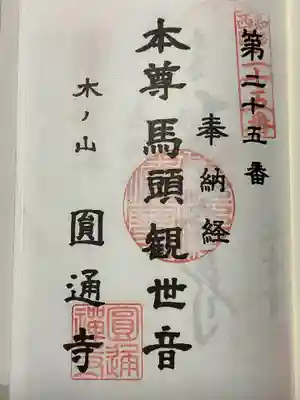 第二十五番
奉納経
本尊馬頭観世音
木ノ山
圓通寺
圓通禪寺